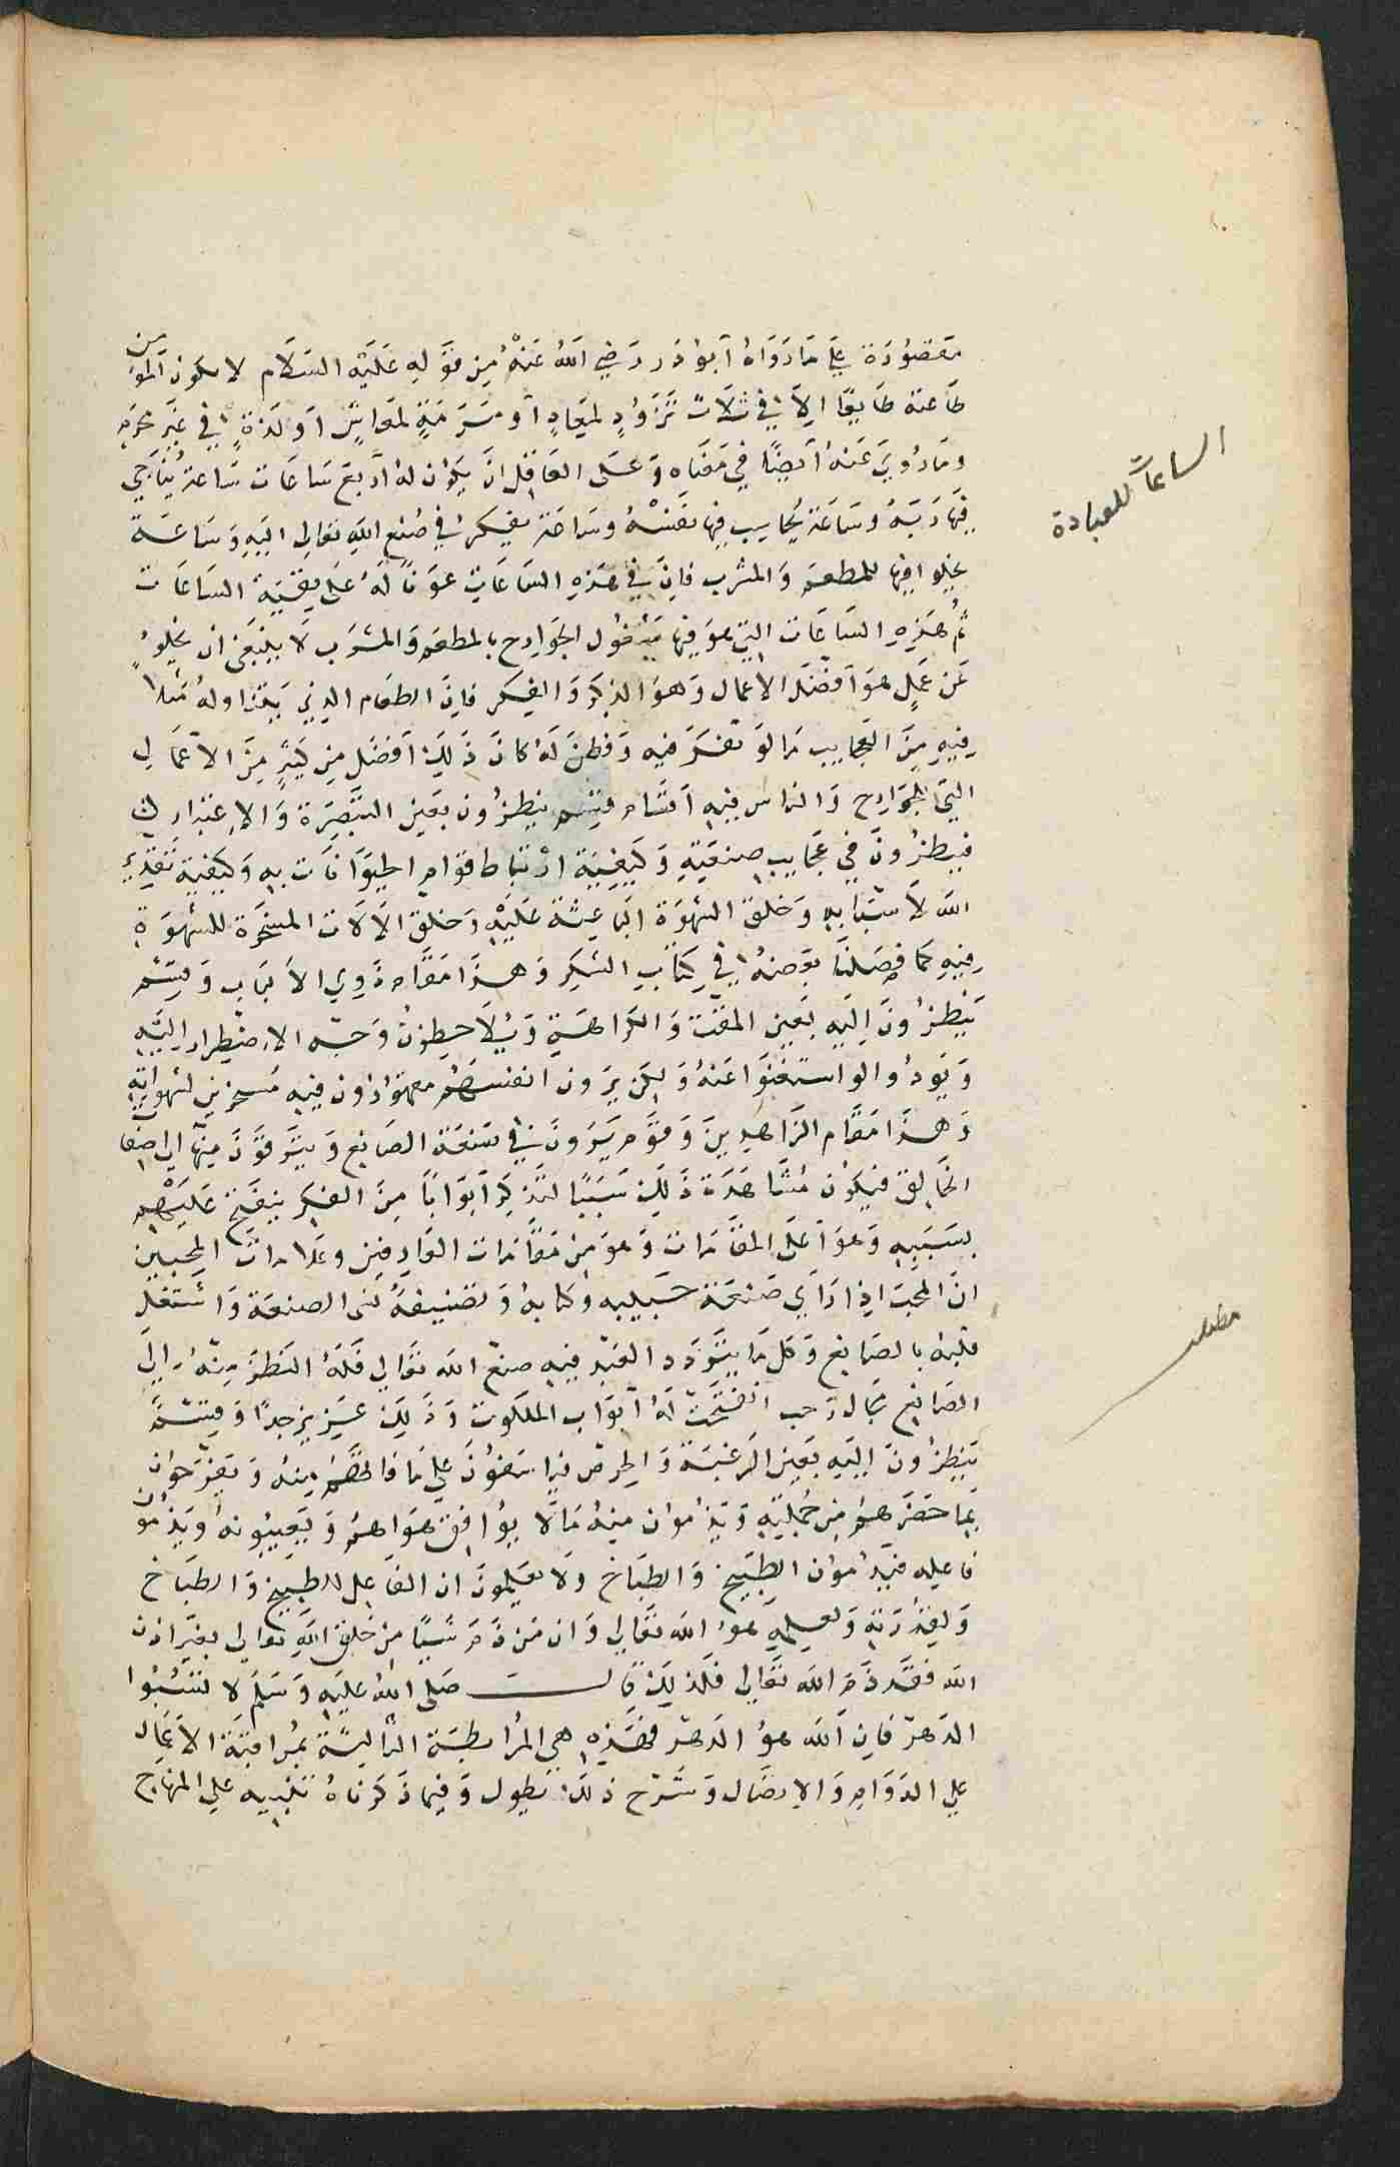 مقصورة علي ما رواه ابو ذر رضي الله عنه من قوله عليه السلام لا يكون المومن
طاعنة طايعا الا في ثلاث تزود لمعاد او مرمة لمعاش او لذة في غير محرم
وما روي عنه ايضا في معناه وعلى العاقل ان يكون له اربع ساعات ساعة يناجي
فيها ربه وساعة يحاسب فيها نفسه وساعة يفكر في صنع الله تعالى اليه وساعة
يخلوا فيها للمطعم والمشرب فان في هذه الساعات عونا له على بقية الساعات
ثم هذه الساعات التي هو فيها مشغول الجوارح بالمطعم والمشرب لا ينبغي ان يخلو
عن عمل هو افضل الاعمال وهو الذكر والفكر فان الطعام الذي يتناوله مثلا
فيه من العجايب ما لو تفكر فيه وفطن له كان ذلك افضل من كثير من الاعمال
التي للجوارح والناس فيه اقسام قسم ينظرون بعين التبصرة والاعتبار
فينظرون في عجايب صنعته وكيفية ارتباط قوام الحيوانات به وكيفية تقدير
الله لاسبابه وخلق الشهوة الباعثة عليه وخلق الالات المسخرة للشهوة
فيه كما فصلنا بعضه في كتاب الشكر وهذا مقام ذوي الالباب وقسم
ينظرون اليه بعين المقت والكراهة ويلاحظون وجه الاضطرار اليه
ويودوا لو استغنوا عنه ولكن يرون انفسهم مقهورون فيه مسخرين لشهواته
وهذا مقام الزاهدين وقوم يرون في صنعة الصانع ويترقون منها الى صفا
الخالق فيكون مشاهدة ذلك سببا لتذكر ابوابا من الفكر ينفتح عليهم
بسببه وهو اعلى المقامات وهو من مقامات العارفين وعلامات المحبين
ان المحب اذا راي صنعة حبيبه وكتابه وتصنيفه نسى الصنعة واشتغل
قلبه بالصانع وكل ما يتردد العبد فيه صنع الله تعالي فله النظر منه الي
الصانع مجال رحب انفتحت له ابواب الملكوت وذلك عزيز جدا وقسم
ينظرون اليه بعين الرغبة والحرص فيتاسفون علي ما فاتهم منه ويفرحون
بما حضرهم من جملته ويذمون منه ما لا يوافق هواهم ويعيبونه ويذمون
فاعله فيذمون الطبيخ والطباخ ولا يعلمون ان الفاعل للطبيخ والطباخ
ولقدرته ولعلمه هو الله تعالي وان من ذم شيئا من خلق الله تعالى بغير اذن
الله فقد ذم الله تعالى فلذلك قال صلى الله عليه وسلم لا تسبوا
الدهر فان الله هو الدهر فهذه هي المرابطة الثانية بمراقبة الاعمال
علي الدوام والاتصال وشرح ذلك يطول وفيما ذكرناه تنبيه علي المنهاج
الساعات للعبادة
مطلب